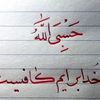 حَسْبِيَ اللّٰهُ
خدا برایم کافیست